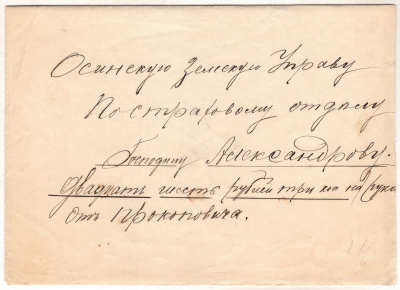 Осинскую Земскую Управу
По страховому отделу
Господину Александрову.
Двадцать шесть рублей три коп на руки
Отъ Прокоповича.